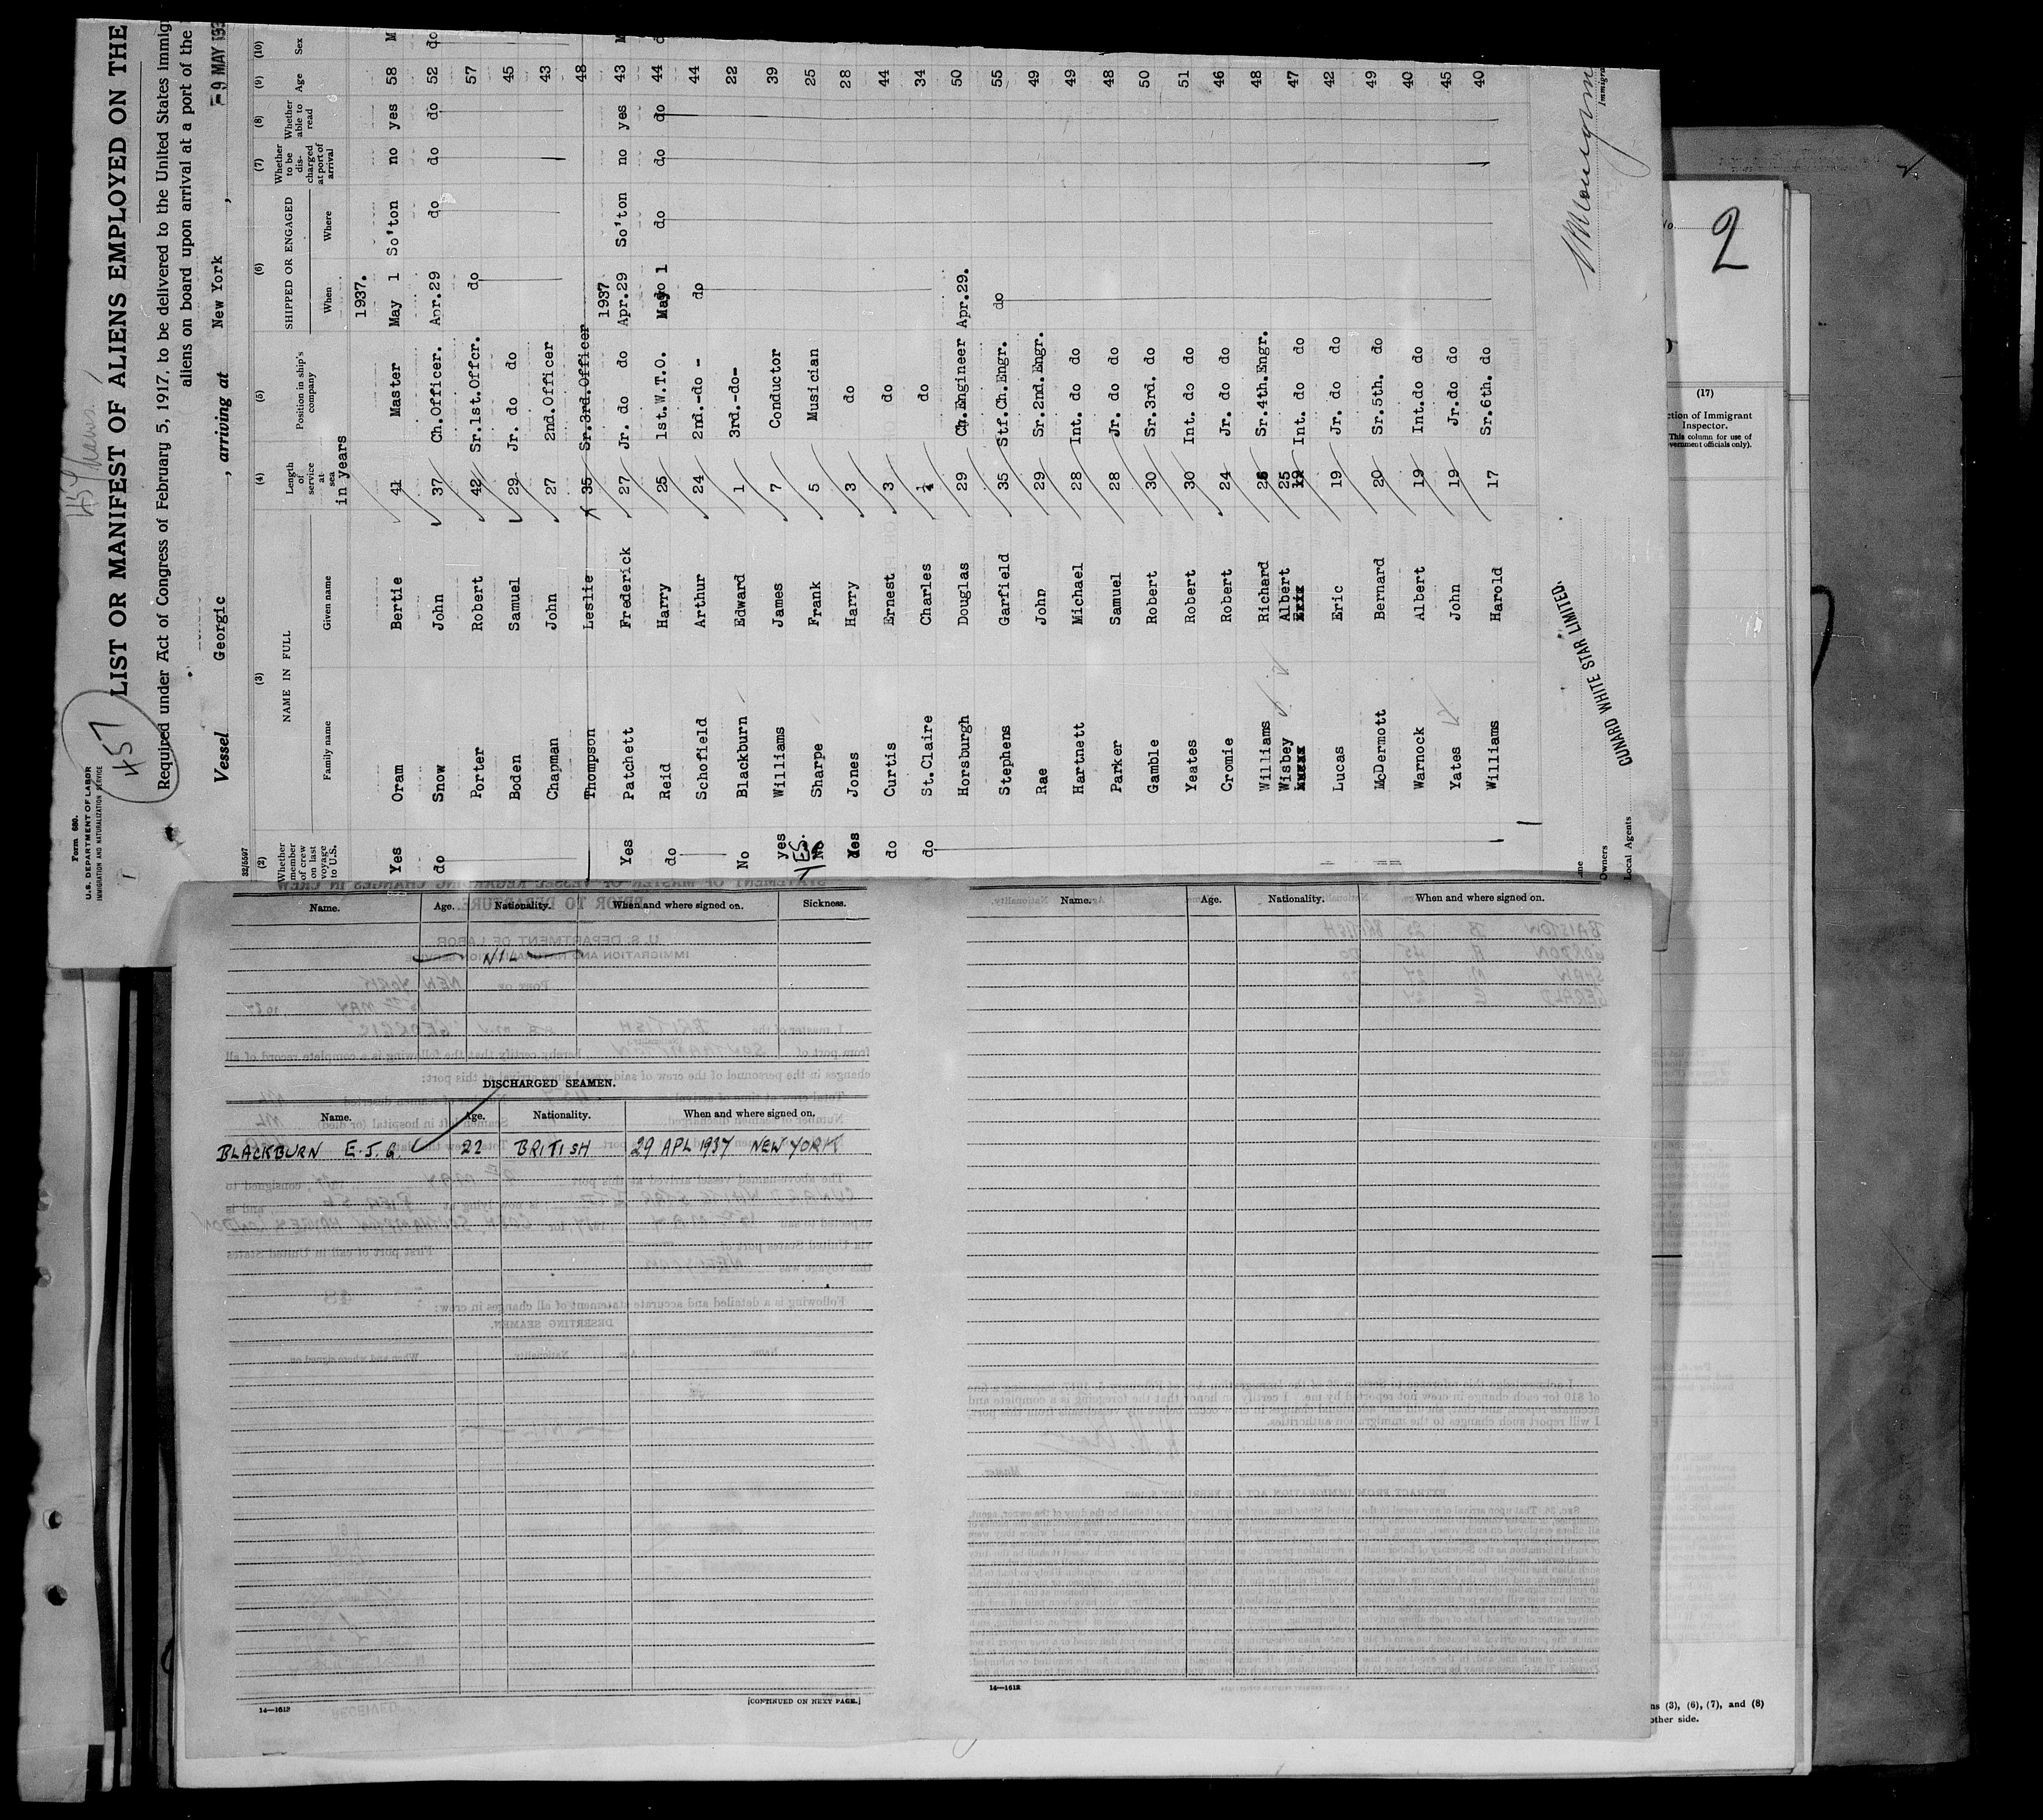 Form 680.
U.S. DEPARTMENT OF LABOR
IMMIGRATION AND NATURALIZATION SERVICE
457
LIST OR MANIFEST OF ALIENS EMPLOYED ON THE
Required under Act of Congress of February 5, 1917, to be delivered to the United States immig
aliens on board upon arrival at a port of the
Vessel Georgic , arriving at New York , - 9 MAY 193
32/5597
(2) (3) (4) (5) (6) (7) (8) (9) (10)
Whether member of crew on last voyage to U.S. NAME IN FULL Family name Given name Length of service at sea in years Position in ship's company SHIPPED OR ENGAGED When Where Whether to be discharged at port of arrival Whether able to read Age Sex
1937.
Yes Oram Bertie 41 Master May 1 So'ton no yes 58 M
do Snow John 37 Ch.Officer. Apr.29 do do do 52 do
Porter Robert 42 Sr.1st.Offcr. do 57
Boden Samuel 29 Jr. do do 45
Chapman John 27 2nd.Officer 43
Thompson Leslie 35 Sr.3rd.Officer 48
1937
Yes Patchett Frederick 27 Jr. do do Apr.29 So'ton no yes 43 M
do Reid Harry 25 1st.W.T.O. May 1 do do do 44 do
Schofield Arthur 24 2nd.-do - do 44
No Blackburn Edward 1 3rd.-do- 22
yes Williams James 7 Conductor 39
YES. No Sharpe Frank 5 Musician 25
Yes Jones Harry 3 do 28
do Curtis Ernest 3 do 44
do St.Claire Charles do 34
Horsburgh Douglas 29 Ch.Engineer Apr.29. 50
Stephens Garfield 35 Stf.Ch.Engr. do 55
Rae John 29 Sr.2nd.Engr. 49
Hartnett Michael 28 Int. do do 49
Parker Samuel 28 Jr. do do 48
Gamble Robert 30 Sr.3rd. do 50
Yeates Robert 30 Int. do do 51
Cromie Robert 24 Jr. do do 46
Williams Richard Sr.4th.Engr. 48
Wisbey Albert 25 Int. do do 47
Lucas Eric 19 Jr. do do 42
McDermott Bernard 20 Sr.5th. do 49
Warnock Albert 19 Int.do do 40
Yates John 19 Jr.do do 45
Williams Harold 17 Sr.6th. do 40
CUNARD WHITE STAR LIMITED.
Owners
Local Agents
Immigra
No. 2
(17)
ction of Immigrant
Inspector.
This column for use of
vernment officials only).
ns (3), (6), (7), and (8)
other side.
Name. Age. Nationality. When and where signed on. Sickness.
NIL
DISCHARGED SEAMEN.
Name. Age. Nationality. When and where signed on.
BLACKBURN E.J.G. 22 BRITISH 29 APL 1937 NEW YORK
14—1612
[CONTINUED ON NEXT PAGE.]
Name. Age. Nationality. When and where signed on.
14—1612